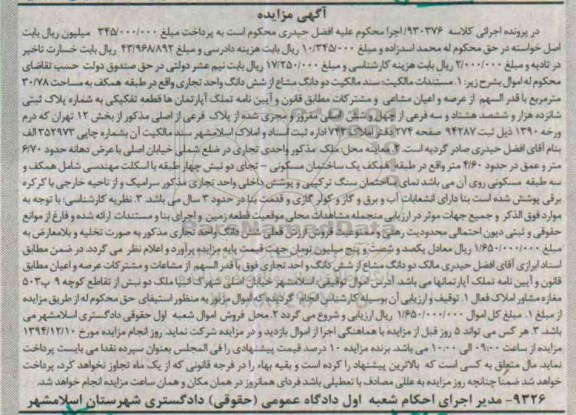 آگهی مزایده
در پرونده اجرائی کلاسه ۹۳۰۳۷۶/ اجرا محکوم علیه افضل حیدری محکوم است به پرداخت مبلغ ۳۴۵/۰۰۰/۰۰۰ میلیون ریال بابت
اصل خواسته در حق محکوم له محمد اسدزاده و مبلغ ۱۰/۳۴۵/۰۰۰ ریال بابت هزینه دادرسی و مبلغ ۴۳/۹۶۸/۸۹۲ ریال بابت خسارت تاخیر
در تادیه و مبلغ ۲/۰۰۰/۰۰۰ ریال بابت هزینه کارشناسی و مبلغ ۱۷/۲۵۰/۰۰۰ ریال بابت نیم عشر دولتی در حق صندوق دولت حسب تقاضای
محکوم له اموال بشرح زیر: ۱. مستندات مالکیت: سند مالکیت دو دانگ مشاع از شش دانگ واحد تجاری واقع در طبقه همکف به مساحت ۳۰/۷۸
مترمربع با قدر السهم از عرصه و اعیان مشاعی و مشترکات مطابق قانون و آیین نامه تملک آپارتمان ها قطعه تفکیکی به شماره پلاک ثبتی
شانزده هزار و ششصد هشتاد و سه فرعی از چهل و شش اصلی مفروز و مجزی شده از پلاک فرعی از اصلی مذکور از بخش ۱۲ تهران که درم
ورخه ۱۳۹۰ ذیل ثبت ۹۴۲۸۷ صفحه ۲۷۴ دفتر املاک ۷۴۳ اداره ثبت اسناد و املاک اسلامشهر سند مالکیت آن بشماره چاپی ۳۵۲۹۷۳ الف
بنام آقای افضل حیدری صادر گردیه است. ۲. معاینه محل: ملک مذکور واحدی تجاری در ضلع شمالی خیابان اصلی با عرض دهانه حدود ۶/۷۰
متر و عمق در حدود ۴/۶۰ متر واقع در طبقه همکف یک ساختمان مسکونی – تجای دو نبش چهار طبقه با اسکلت مهندسی شامل همکف و
سه طبقه مسکونی روی آن می باشد نمای ساختمان سنگ ترکیبی و پوشش داخلی واحد تجاری مذکور سرامیک و از ناحیه خارجی با کرکره
برقی پوشش شده است بنا دارای انشعابات آب و برق و گاز و کولر گازی و قدمت بنا در حدود ۳ سال می باشد. ۳. نظریه کارشناسی: با توجه به
موارد فوق الذکر و جمیع جهات موثر در ارزیابی منجمله مشاهدات محلی موقعیت قطعه زمین و اجرای بنا و مستندات ارائه شده و فارغ از موانع
حقوقی و ثبتی دیون احتمالی محدودیت رهنی و ممنوعیت فروش ارزش فعلی دانگ واحد تجاری مذکور به صورت تخلیه و بلامعارض به
مبلغ ۱/۶۵۰/۰۰۰/۰۰۰ ریال معادل یکصد و شصت و پنج میلیون تومان جهت قیمت پایه مزایده برآورد و اعلام نظر می گردد. در ضمن مطابق
اسناد ابرازی آقای افضل حیدری مالک دو دانگ مشاع از شش دانگ و احد تجاری فوق با قدر السهم از مشاعات و مشترکات عرصه و اعیان مطابق
قانون و آیین نامه تملک آپارتمانها می باشد. آدرس اموال توقیفی: اسلامشهر خیابان اصلی شهرک انبیا ملک دو نبش از تقاطع کوچه ۹ پ۵۰۳
مغازه مشاور املاک فعال ۱. توقیف و ارزیابی آن بوسیله کارشناس انجام گردیده که اموال مزبور به منظور استیفای حق محکوم له از طریق مزایده
از مبلغ ۱. مبلغ کل اموال ۱/۶۵۰/۰۰۰/۰۰۰ ریال ارزیابی و شروع می گردد ۲. محل فروش اموال شعبه اول حقوقی دادگستری اسلامشهر می
باشد. ۳. هر کس می تواند ۵ روز قبل از مزایده با هماهنگی اجرا از اموال بازدید و در مزایده شرکت نماید. روز انجام مزایده مورخ ۱۳۹۴/۱۲/۱۰
مزایده از ساعت ۰۹:۰۰ الی ۱۰:۰۰ می باشد. برنده مزایده ۱۰ درصد قیمت پیشنهادی را فی المجلس بعنوان سپرده نقدا می بایست پرداخت
نماید. مال متعلق به کسی است که بالاترین پیشنهاد را کرده است و بقیه بهاء را در فرجه قانونی که از یک ماه تجاوز نخواهد کرد، پرداخت
خواهد شد ضمنا چنانچه روز مزایده به عللی مصادف با تعطیلی باشد فردای همانروز در همان مکان و همان ساعت مزایده انجام خواهد شد.
۹۳۲۶- مدیر اجرای احکام شعبه اول دادگاه عمومی (حقوقی) دادگستری شهرستان اسلامشهر